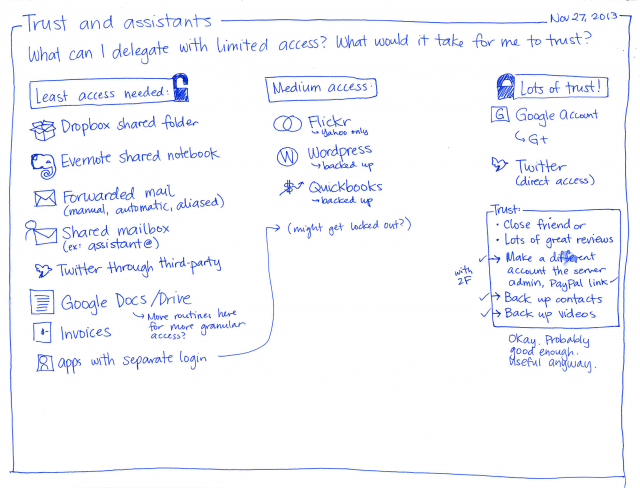 Trust and assistants
Nov 27, 2013
What can I delegate with limited access? What would it take for me to trust?
Least access needed:
Dropbox shared folder
Evernote shared notebook
Forwarded mail
(manual, automatic, aliased)
Shared mailbox
(ex: assistant@)
Twitter through third-party
Google Docs/Drive
More routines here
for more granular
access?
Invoices
apps with separate login
Medium access:
Flickr
Yahoo only
W
Wordpress
backed up
$
Quickbooks
backed up
(might get locked out?)
Lots of trust!
G
Google Account
G+
Twitter
(direct access)
Trust:
• Close friend or
• Lots of great reviews
with
2F
• Make a different
account the server
admin, PayPal link
• Back up contacts
• Back up videos
Okay. Probably
good enough.
Useful anyway.